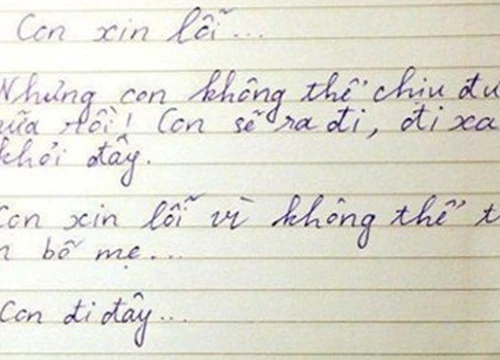 Con xin lỗi...
Nhưng con không thể chịu đư
nữa rồi! Con sẽ ra đi, đi xa
khỏi đây.
Con xin lỗi vì không thể t
n bố mẹ...
Con đi đây...